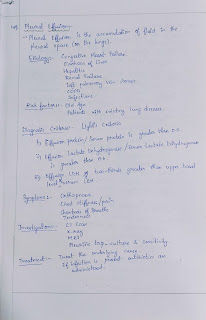 Pleural Effusion:-
Pleural Effusion is the accumulation of fluid in the
pleural space (or the lungs).
Etiology:- Congestive Heart Failure
Cirrhosis of Liver
Hepatitis
Renal Failure
left pulmonary
COPD
Infections
Risk factors:- Old Age
Patients with existing lung disease.
Diagnostic Criteria:- Light's Criteria
1) Effusion protein/Serum protein is greater than 0.5
2) Effusion Lactate Dehydrogenase / Serum Lactate Dehydrogenase
is greater than 0.6.
3) Effusion LDH of two-thirds greater than upper band
Serum LDH
Symptoms:- Orthopnoea
Chest stiffness/pain
Shortness of Breath
Investigations:- CT Scan
X-Ray
MRI
culture & Sensitivity.
Treatment:- Treat the underlying cause
If infection is present antibiotics are
administered.